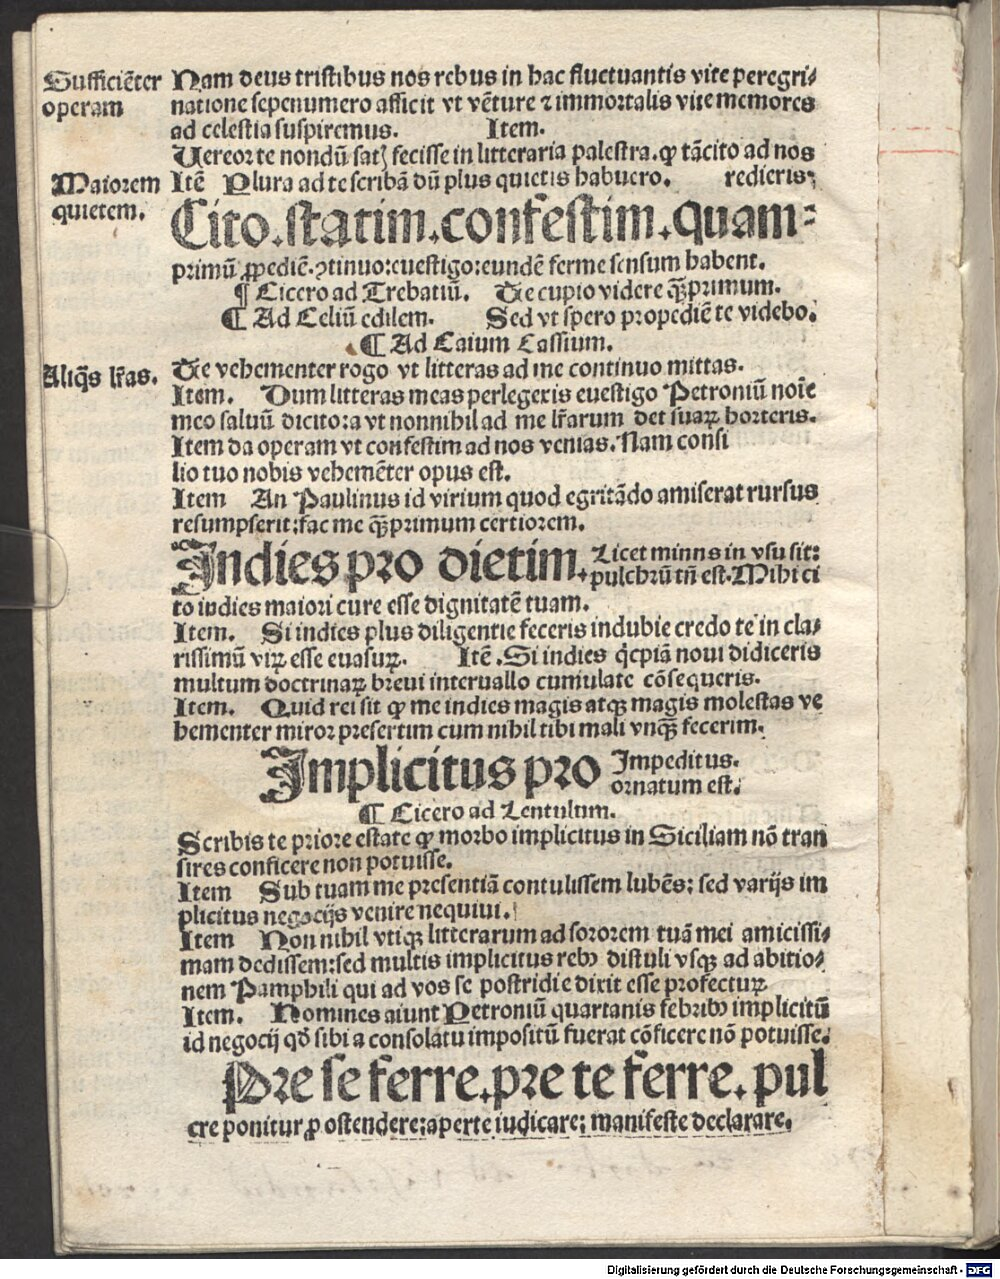 Sufficiēter
operam
Nam deus tristibus nos rebus in hac fluctuantis vite peregri/
natione sepenumero afficit vt vēture ⁊ immortalis vite memores
ad celestia suspiremus. Item.
Uereor te nondū satꝫ fecisse in litteraria palestra. ꝙ tācito ad nos
Maiorem
quietem.
Itē Plura ad te scribā dū plus quietis habuero. redieris;
Cito. statim. confestim. quam⸗
primū ꝓpediē. ꝯtinuo: euestigo: eundē ferme sensum habent.
¶ Cicero ad Trebatiū. Te cupio videre qꝫprimum.
¶ Ad Celiū edilem. Sed vt spero propediē te videbo.
¶ Ad Caium Cassium.
Aliqͥs lr̄as.
Te vehementer rogo vt litteras ad me continuo mittas.
Item. Dum litteras meas perlegeris euestigo Petroniū noīe
meo saluū dicito: a vt nonnihil ad me lr̄arum det suaꝝ horteris.
Item da operam vt confestim ad nos venias. Nam consi
lio tuo nobis vehemēter opus est.
Item An Paulinus id virium quod egritādo amiserat rursus
resumpserit: fac me qꝫprimum certiorem.
Indies pro dietim. Licet minns in vsu sit:
pulchrū tn̄ est. Mihi ci
to indies maiori cure esse dignitatē tuam.
Item. Si indies plus diligentie feceris indubie credo te in cla/
rissimū viꝝ esse euasuꝝ. Itē. Si indies qͥcpiā noui didiceris
multum doctrinaꝝ breui interuallo cumulate cōsequeris.
Item. Quid rei sit ꝙ me indies magis atqꝫ magis molestas ve
hementer miror presertim cum nihil tibi mali vnqꝫ fecerim.
Implicitus pro Impeditus.
ornatum est.
¶ Cicero ad Lentulum.
Scribis te priore estate ꝙ morbo implicitus in Siciliam nō tran
sires conficere non potuisse.
Item Sub tuam me presentiā contulissem lubēs: sed varijs im
plicitus negocijs venire nequiui.
Item Non nihil vtiqꝫ litterarum ad sororem tuā mei amicissi/
mam dedissem: sed multis implicitus rebꝰ distuli vsqꝫ ad abitio/
nem Pamphili qui ad vos se postridie dixit esse profectuꝝ
Item. Nomines aiunt Petroniū quartanis febribꝰ implicitū
id negocij qd̄ sibi a consolatu impositū fuerat cōficere nō potuisse.
Pre se ferre. pre te ferre. pul
cre ponitur ꝓ ostendere: aperte iudicare: manifeste declarare.
Digitalisierung gefördert durch die Deutsche Forschungsgemeinschaft - DFG